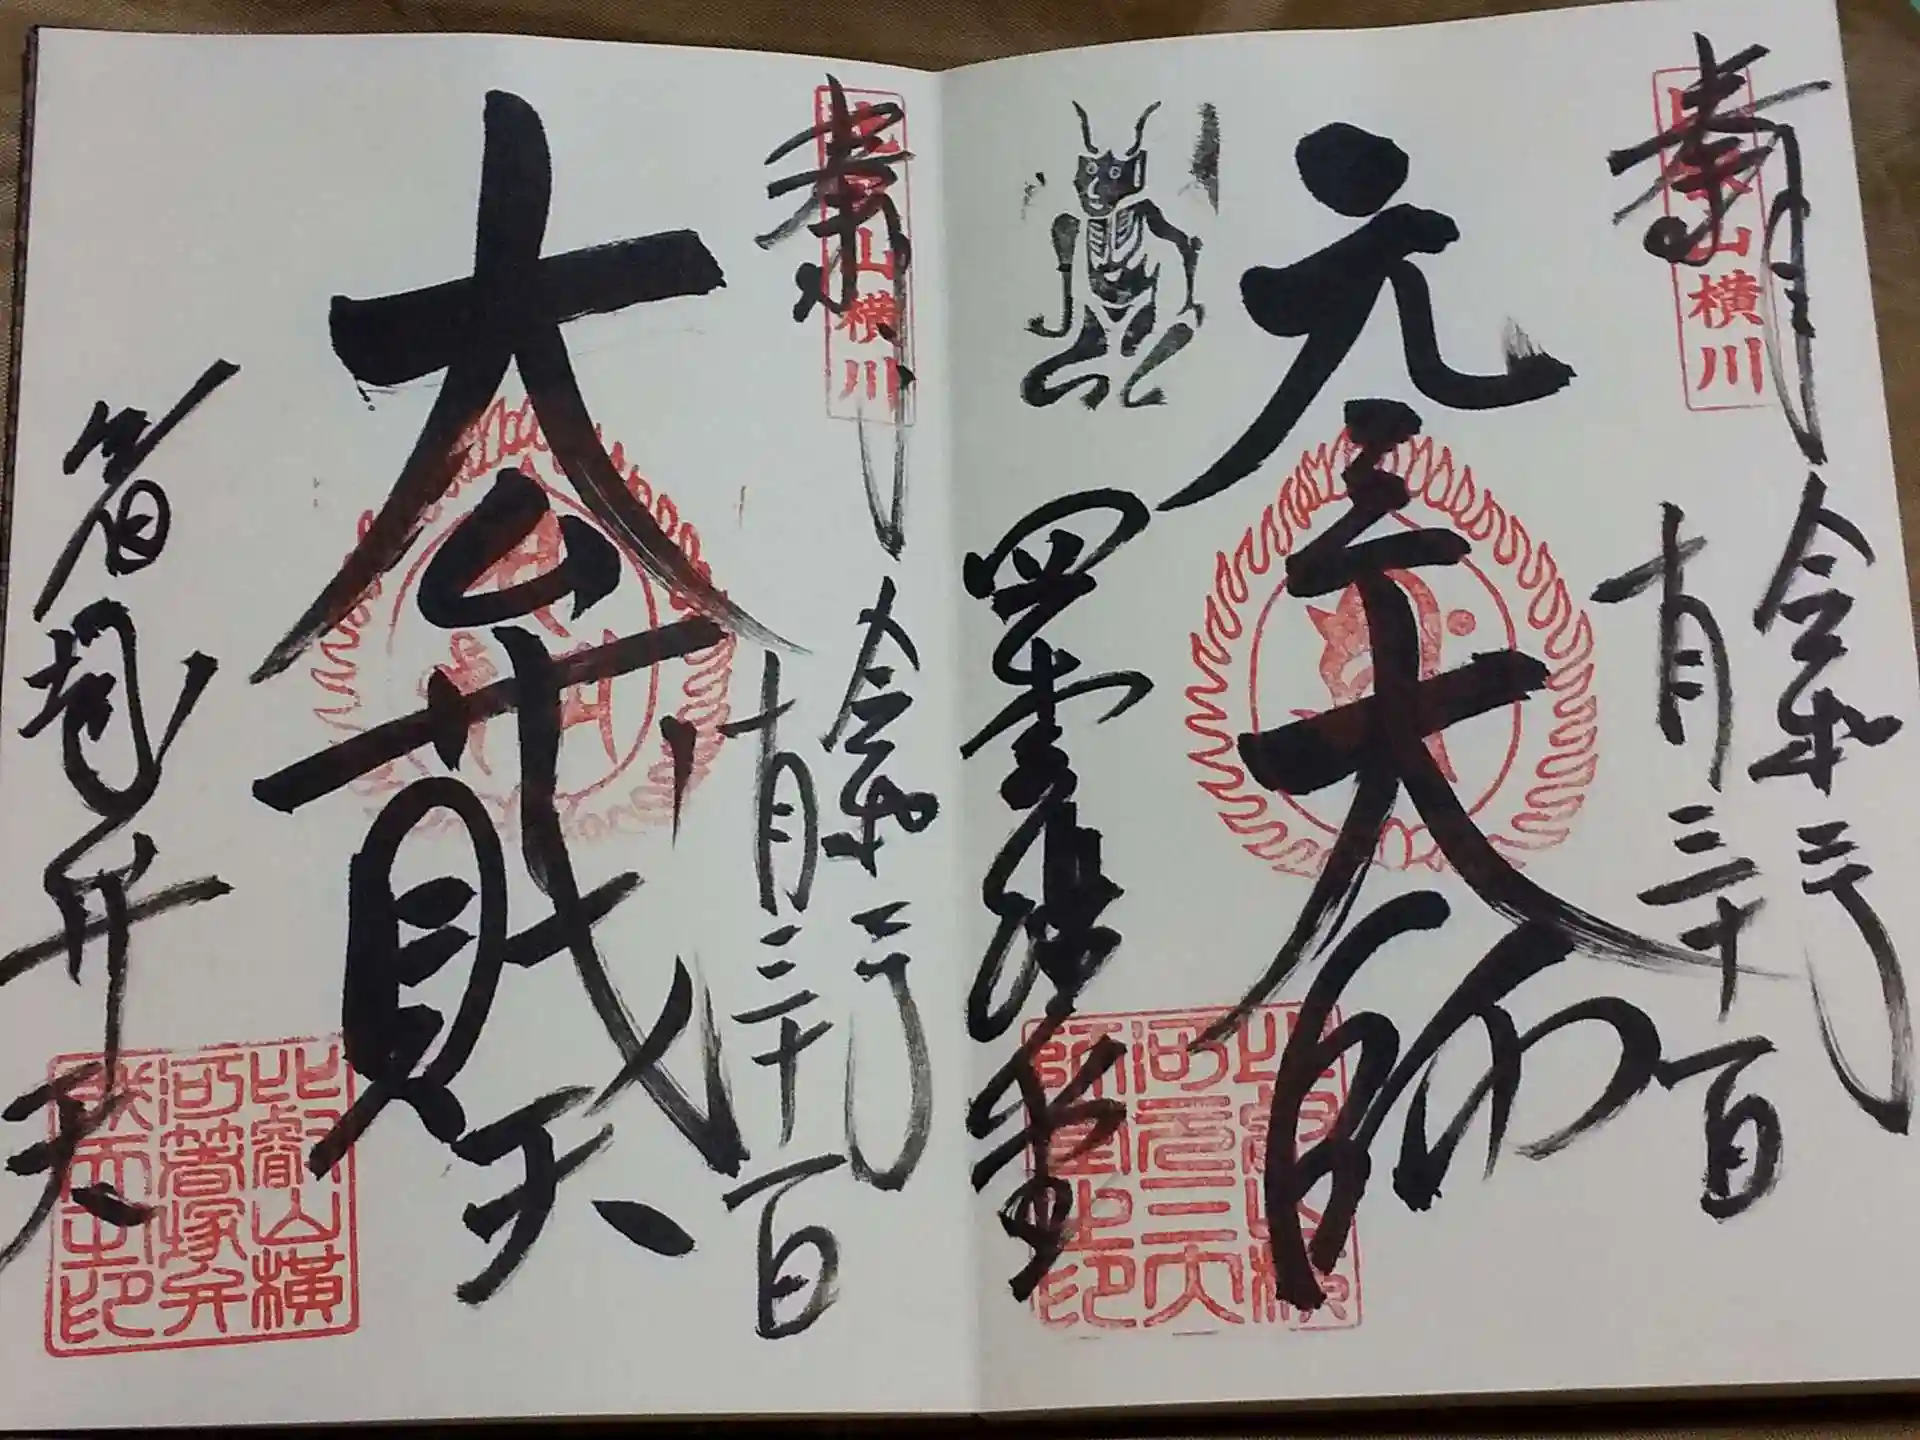 奉拝
比叡山横川
令和元
十月三十一日
元三大師
四季講堂
比叡山横
河元三大
師堂之印
奉拝
比叡山横川
令和元
十月三十一日
大弁財天
箸塚弁天
比叡山横
河箸塚弁
財天之印